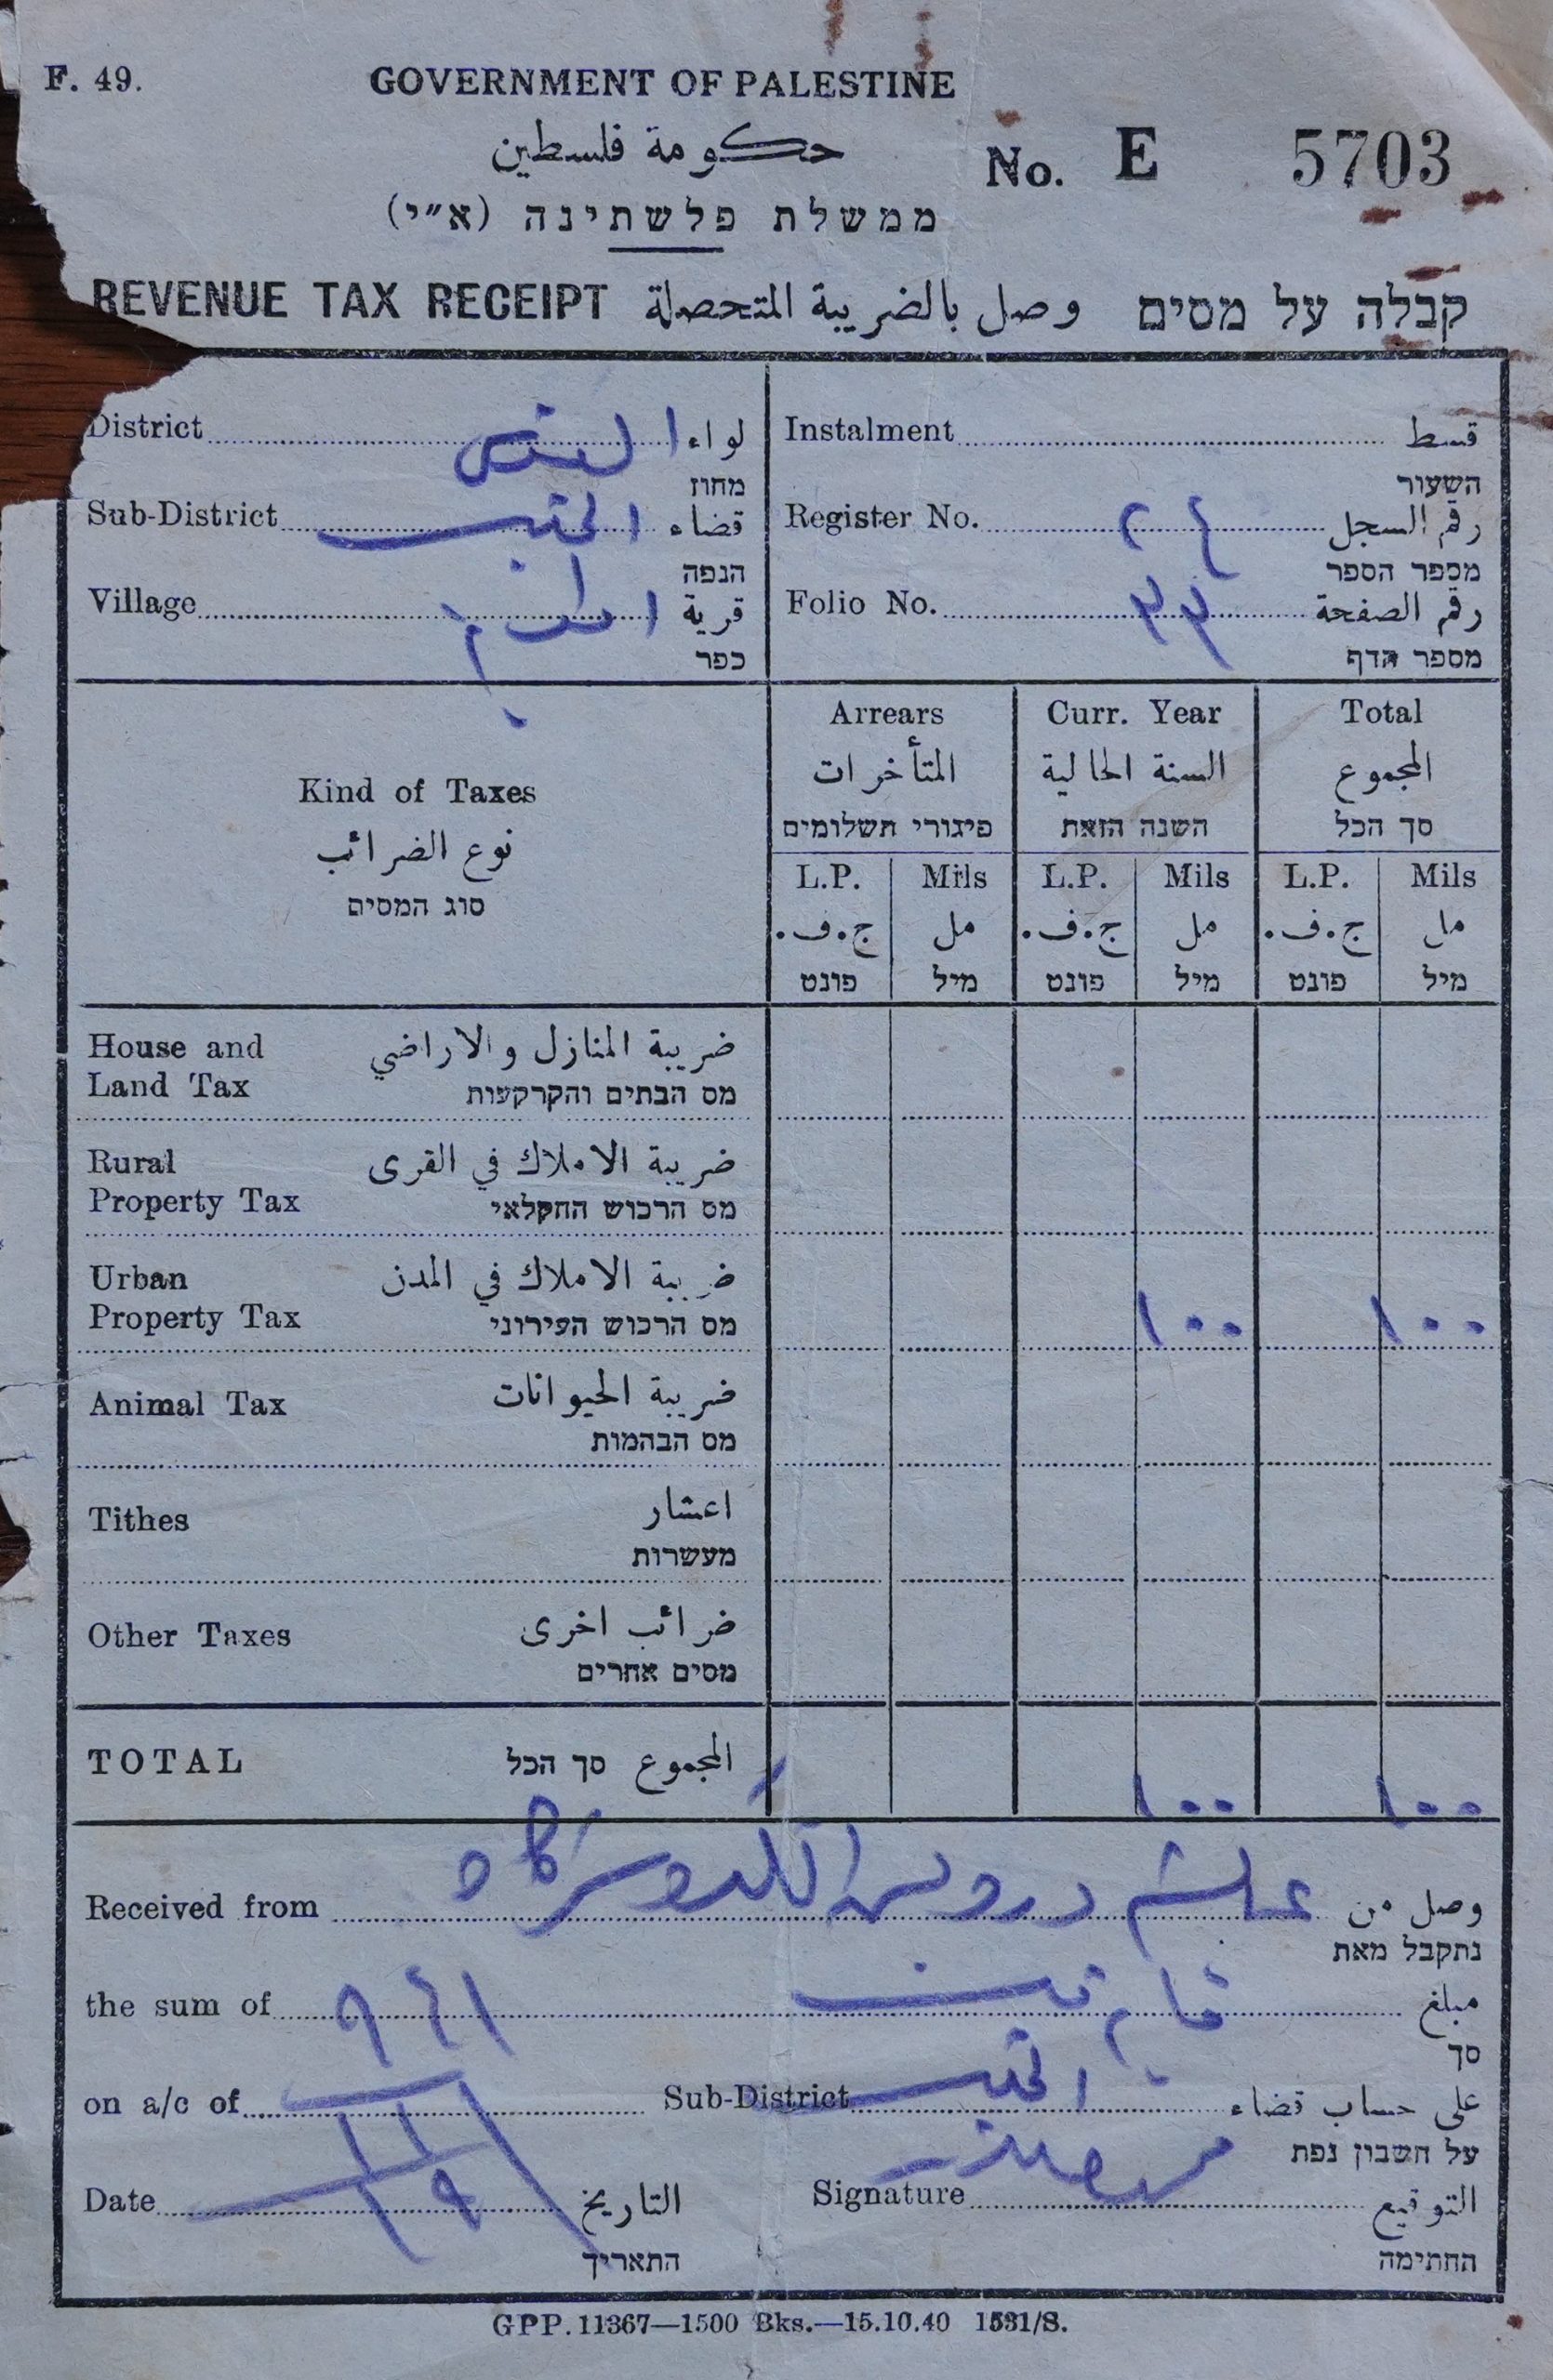 F. 49.
GOVERNMENT OF PALESTINE
حكومة فلسطين
No. E 5703
ממשלת פלשתינה (א״י)
REVENUE TAX RECEIPT وصل بالضريبة المتحصلة קבלה על מסים
District القدس لواء
מחוז
Instalment قسط
השעור
Sub-District الخليل قضاء
הנפה
Register No. رقم السجل
מספר הספר
Village قرية
כפר
Folio No. ٣٣ رقم الصفحة
מספר הדף
Kind of Taxes
نوع الضرائب
סוג המסים
Arrears Curr. Year Total
المتأخرات السنة الحالية المجموع
פיגורי תשלומים השנה הזאת סך הכל
L.P. Mils L.P. Mils L.P. Mils
ج.ف. مل ج.ف. مل ج.ف. مل
פונט מיל פונט מיל פונט מיל
House and ضريبة المنازل والاراضي
Land Tax מס הבתים והקרקעות
Rural ضريبة الاملاك في القرى
Property Tax מס הרכוש החקלאי
Urban ضريبة الاملاك في المدن
Property Tax מס הרכוש העירוני ١٠٠ ١٠٠
Animal Tax ضريبة الحيوانات
מס הבהמות
Tithes اعشار
מעשרות
Other Taxes ضرائب اخرى
מסים אחרים
TOTAL المجموع סך הכל ١٠٠ ١٠٠
Received from وصل من
נתקבל מאת
the sum of مبلغ
סך
on a/c of Sub-District الخليل على حساب قضاء
על חשבון נפת
Date التاريخ Signature التوقيع
התאריך החתימה
GPP. 11367—1500 Bks.—15.10.40 1531/S.